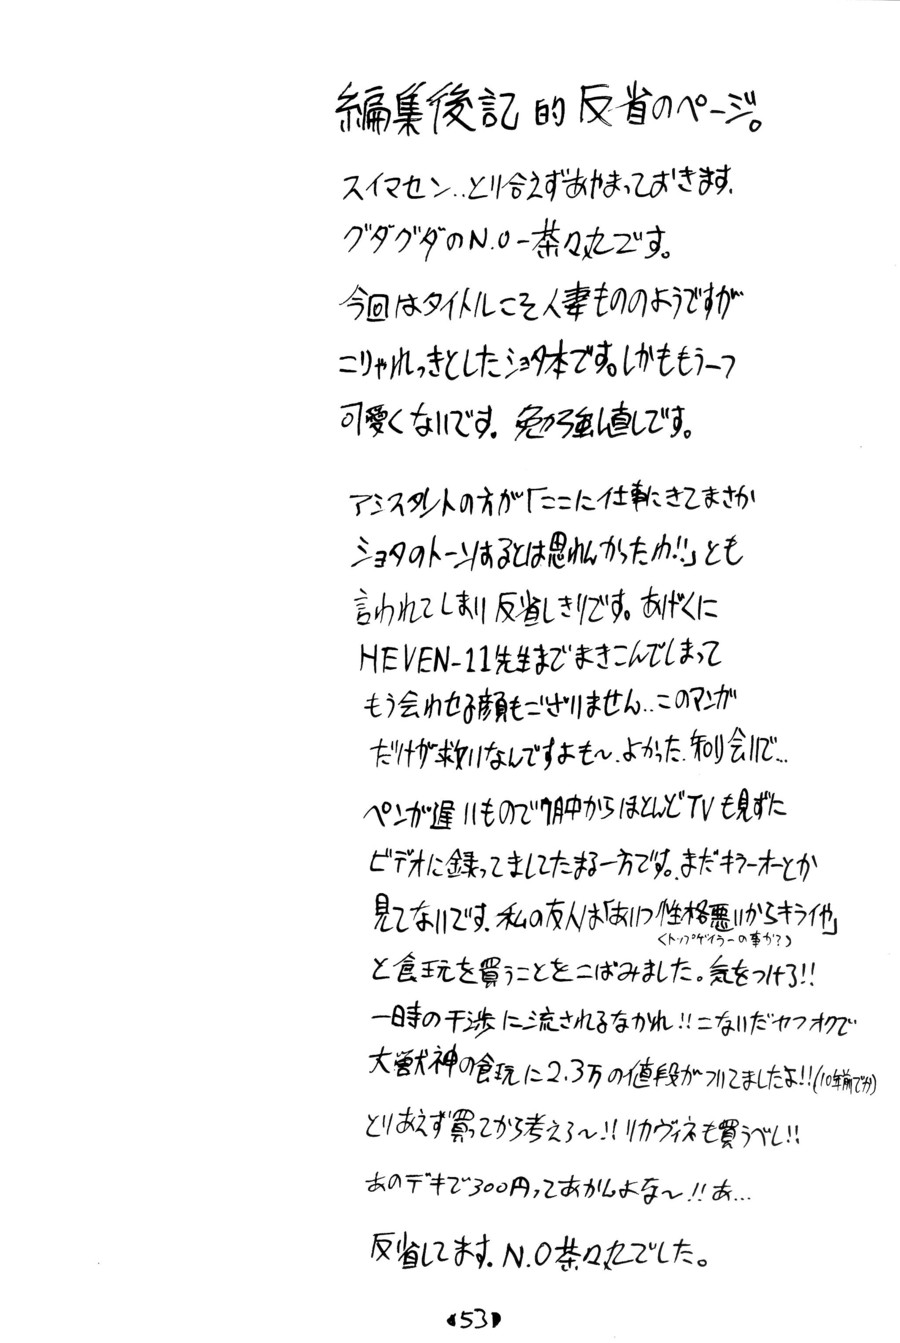 編集後記的反省のページ。
スイマセン..とり合えずあやまっておきます.
グダグダのN.O-茶々丸です。
今回はタイトルこそ人妻もののようですが
こりゃれっきとしたショタ本です。しかももう一つ
可愛くないです. 勉強し直しです。
アシスタントの方が「ここに仕事にきてまさか
ショタのトーンはるとは思れんかったわ!!」とも
言われてしまい反省しきりです。あげくに
HEVEN-11先生までまきこんでしまって
もう会わせる顔もございません..このマンガ
だけが救いなんですよも〜.よかった.知り会いで...
ペンが遅いもので期中からほとんどTVも見ずに
ビデオに録ってましてたまる一方です.まだキラーオーとか
見てないです.私の友人は「あいつ性格悪いからキライや」
<トップゲイラーの事か?>
と食玩を買うことをこばみました。気をつけろ!!
一時の干渉に流されるなかれ!!こないだヤフオクで
大獣神の食玩に2.3万の値段がついてましたよ!!(10年前で分)
とりあえず買ってから考えろ〜!!リカヴィネも買うべし!!
あのデキで300円ってあかんよな〜!!あ...
反省してます.N.O茶々丸でした。
53